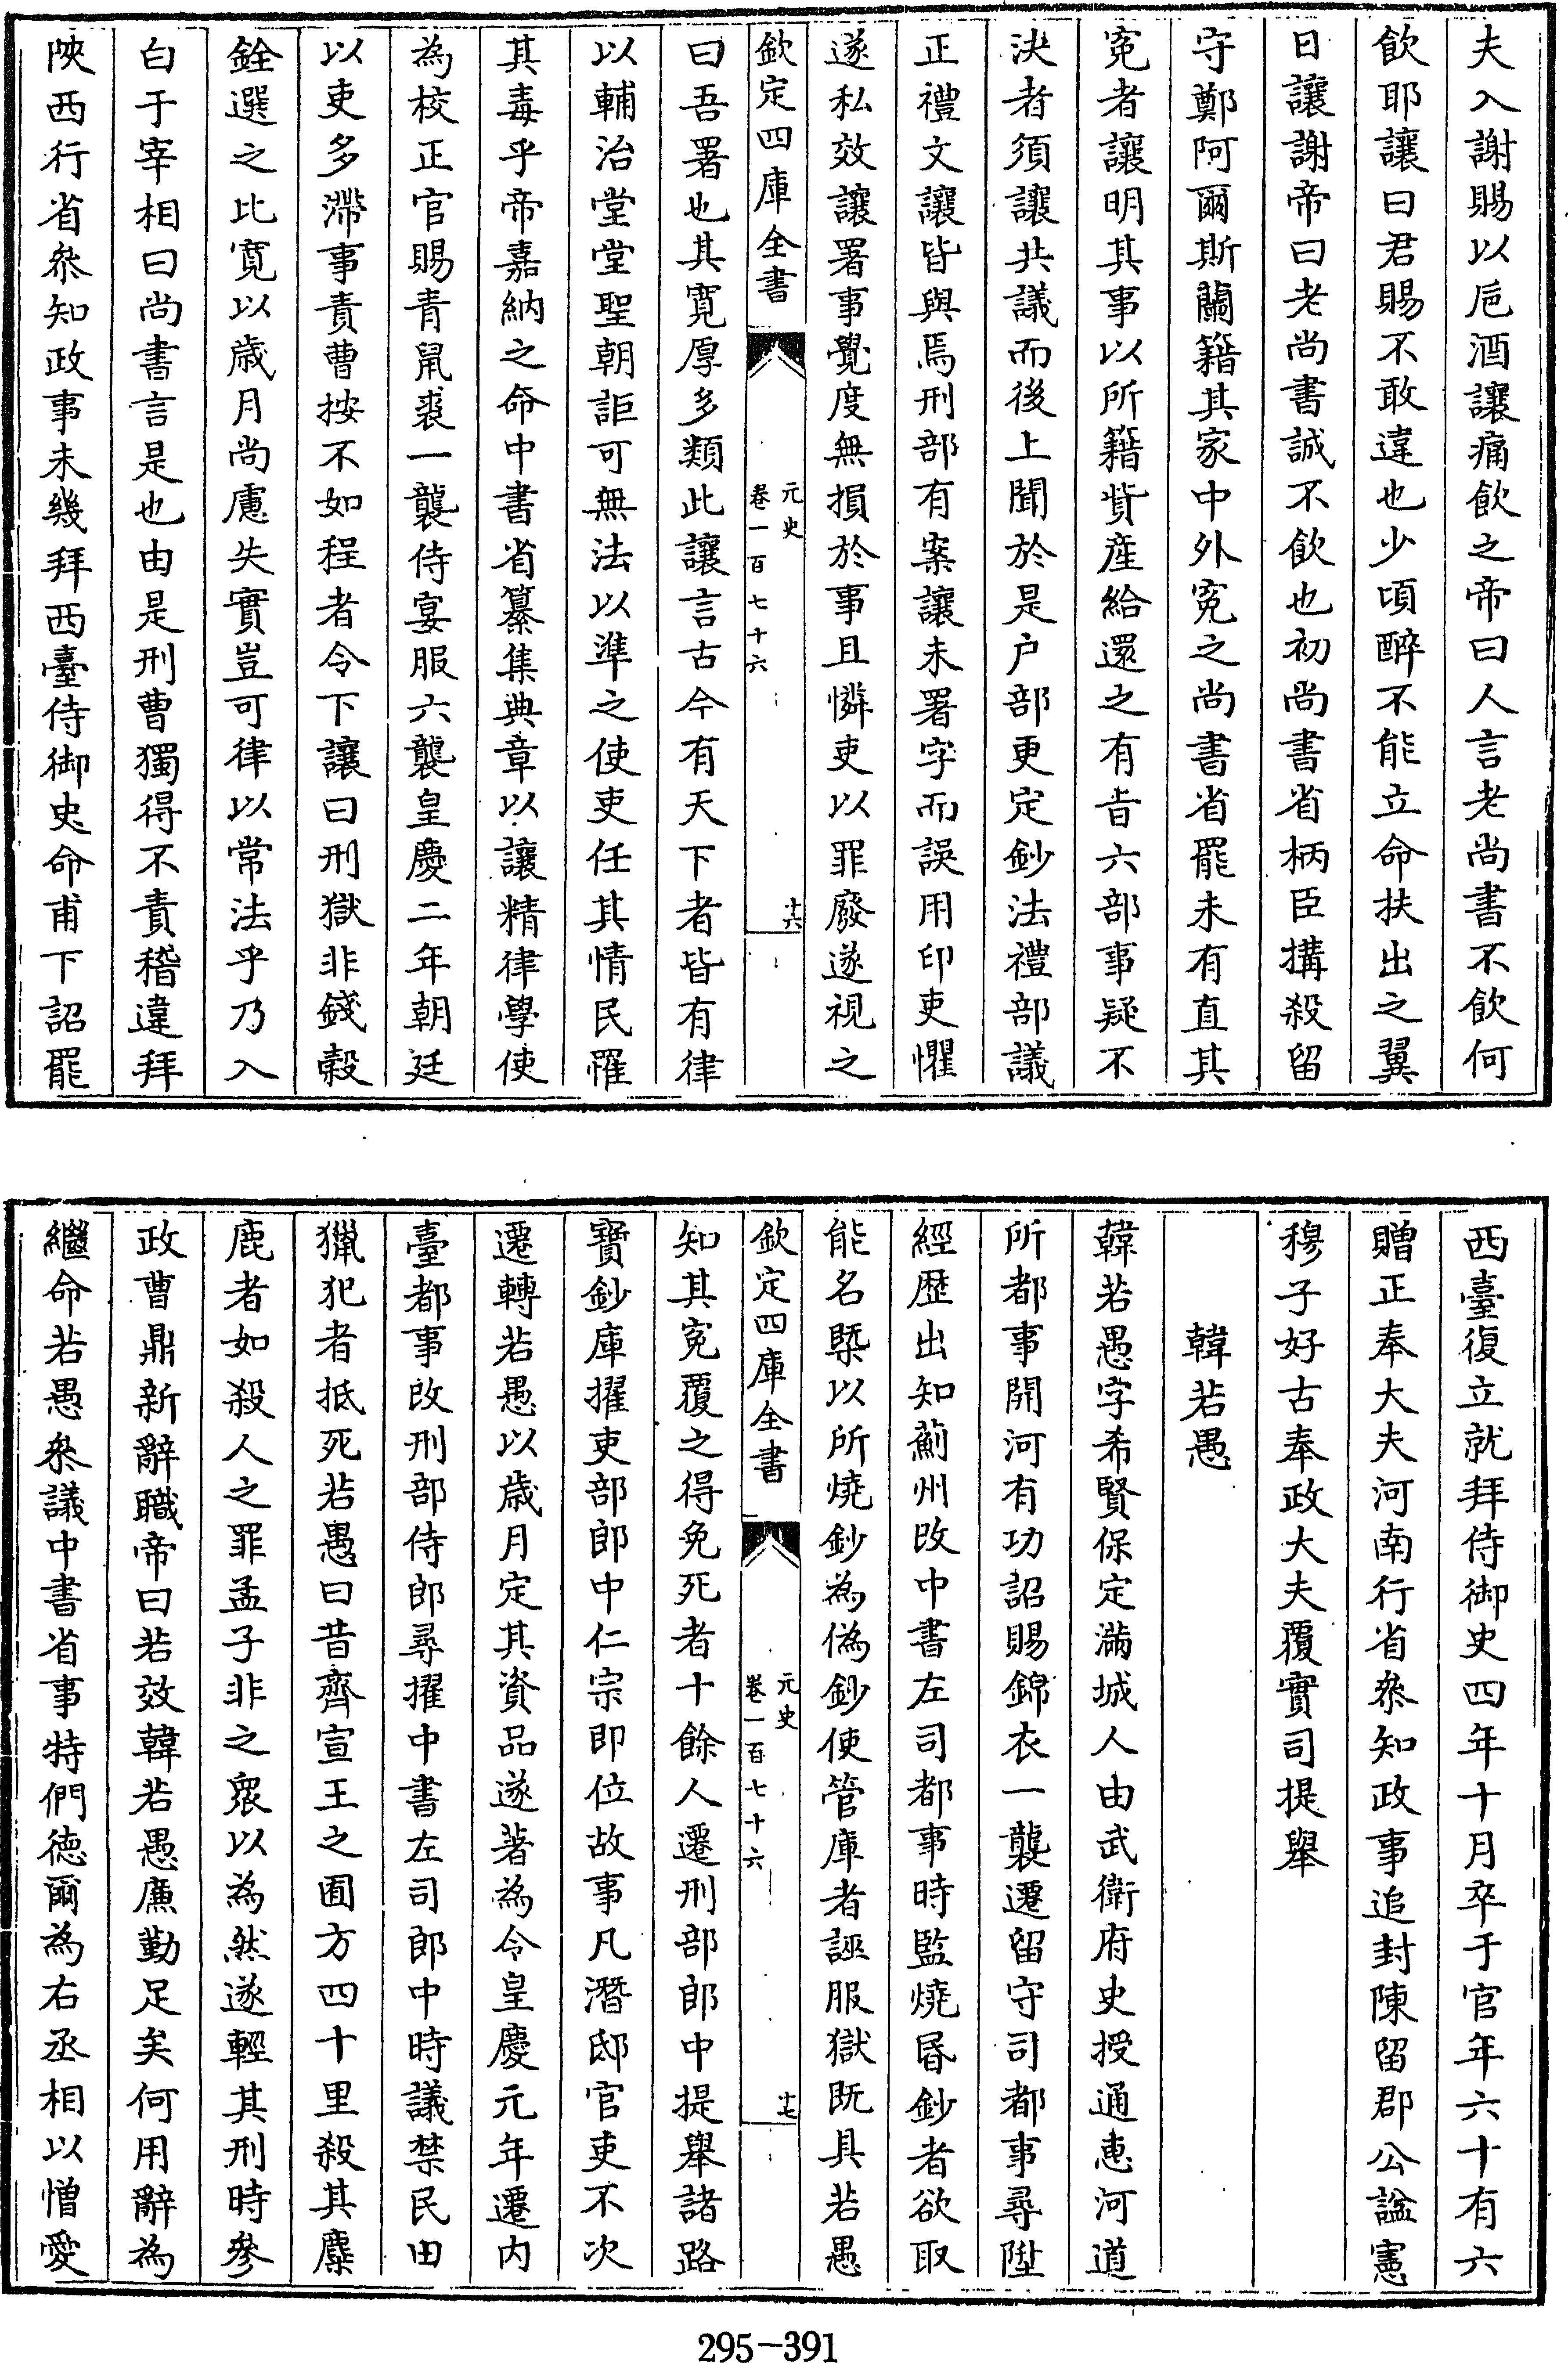 夫入謝賜以巵酒讓痛飲之帝曰人言老尚書不飲何
飲耶讓曰君賜不敢違也少頃醉不能立命扶出之翼
日讓謝帝曰老尚書誠不飲也初尚書省柄臣搆殺留
守鄭阿爾斯蘭籍其家中外寃之尚書省罷未有直其
寃者讓明其事以所籍貲産給還之有旨六部事疑不
決者須讓共議而後上聞於是户部更定鈔法禮部議
正禮文讓皆與焉刑部有案讓未署字而誤用印吏懼
遂私效讓署事覺度無損於事且憐吏以罪廢遂視之
欽定四庫全書
元史
卷一百七十六
十六
曰吾署也其寛厚多類此讓言古今有天下者皆有律
以輔治堂堂聖朝詎可無法以準之使吏任其情民罹
其毒乎帝嘉納之命中書省纂集典章以讓精律學使
為校正官賜青鼠裘一襲侍宴服六襲皇慶二年朝廷
以吏多滯事責曹按不如程者令下讓曰刑獄非錢榖
銓選之比寛以歳月尚慮失實豈可律以常法乎乃入
白于宰相曰尚書言是也由是刑曹獨得不責稽違拜
陜西行省叅知政事未幾拜西臺侍御史命甫下詔罷
西臺復立就拜侍御史四年十月卒于官年六十有六
贈正奉大夫河南行省叅知政事追封陳留郡公諡憲
穆子好古奉政大夫覆實司提舉
韓若愚
韓若愚字希賢保定滿城人由武衛府史授通惠河道
所都事開河有功詔賜錦衣一襲遷留守司都事尋陞
經歴出知薊州改中書左司都事時監燒昬鈔者欲取
能名槩以所燒鈔為偽鈔使管庫者誣服獄既具若愚
欽定四庫全書
元史
卷一百七十六
十七
知其寃覆之得免死者十餘人遷刑部郎中提舉諸路
寶鈔庫擢吏部郎中仁宗即位故事凡潛邸官吏不次
遷轉若愚以歳月定其資品遂著為令皇慶元年遷内
臺都事改刑部侍郎尋擢中書左司郎中時議禁民田
獵犯者抵死若愚曰昔齊宣王之囿方四十里殺其麋
鹿者如殺人之罪孟子非之衆以為然遂輕其刑時參
政曹鼎新辭職帝曰若效韓若愚㢘勤足矣何用辭為
繼命若愚叅議中書省事特們徳爾為右丞相以憎愛
295-391